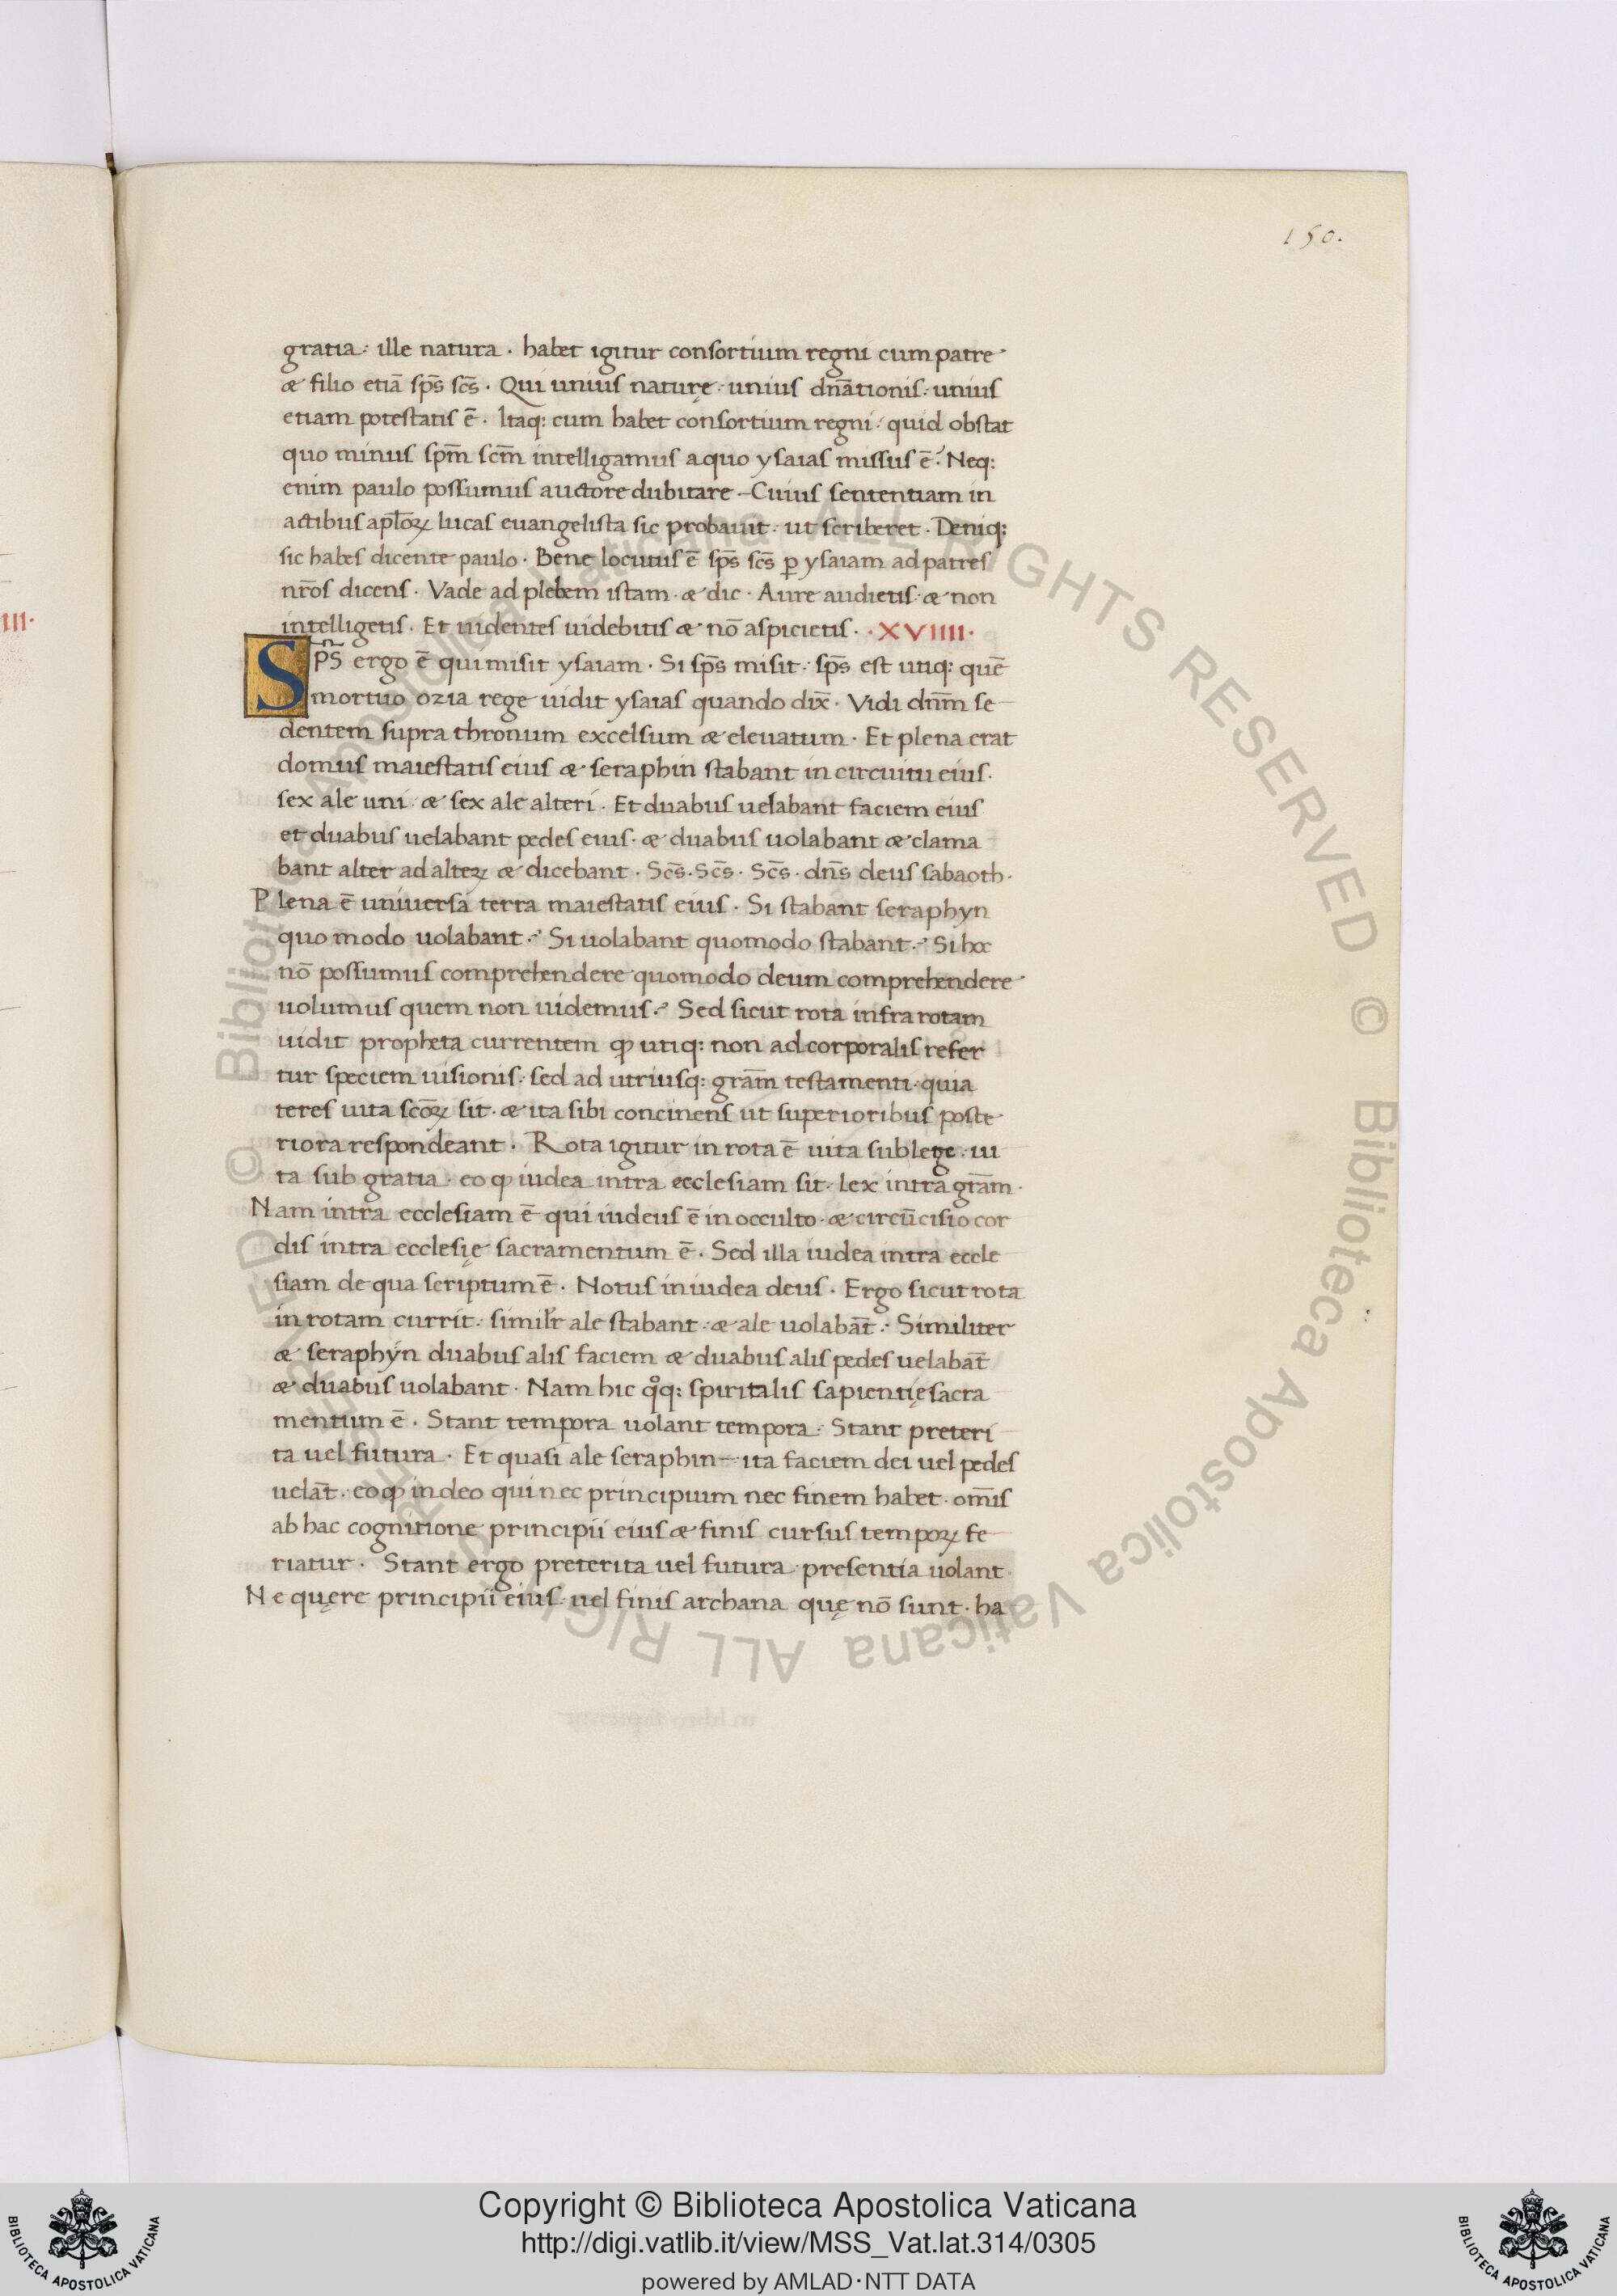 150.
gratia: ille natura · habet igitur consortium regni cum patre
& filio etiā sp̄s sc̄s · Qui unius naturę · unius dn̄ationis: unius
etiam potestatis ē · Itaq: cum habet consortium regni: quid obstat
quo minus sp̄m sc̄m intelligamus aquo ysaias missus ē? Neq:
enim paulo possumus auctore dubitare – Cuius sententiam in
actibus apl̄oꝝ lucas euangelista sic probauit · ut scriberet · Deniq:
sic habes dicente paulo · Bene locutus ē sp̄s sc̄s ꝑ ysaiam ad patres
nr̄os dicens · Vade ad plebem istam · & dic · Aure audietis · & non
intelligetis · Et uidentes uidebitis & nō aspicietis · · XVIIII ·
SP̄S ergo ē qui misit ysaiam · Si sp̄s misit: sp̄s est utiq: quē
mortuo ozia rege uidit ysaias quando dix̄ · Vidi dn̄m se
dentem supra thronum excelsum & eleuatum · Et plena erat
domus maiestatis eius & seraphin stabant in circuitu eius ·
sex ale uni · & sex ale alteri · Et duabus uelabant faciem eius
et duabus uelabant pedes eius · & duabus uolabant & clama
bant alter ad alteꝝ & dicebant · Sc̄s · Sc̄s · Sc̄s · dn̄s deus sabaoth ·
Plena ē uniuersa terra maiestatis eius · Si stabant seraphyn
quo modo uolabant? Si uolabant quomodo stabant? Si hoc
nō possumus comprehendere quomodo deum comprehendere
uolumus quem non uidemus? Sed sicut rota infra rotam
uidit propheta currentem ꝙ utiq: non ad corporalis refer
tur speciem uisionis: sed ad utriusq: gr̄am testamenti · quia
teres uita sc̄oꝝ sit · & ita sibi concinens ut superioribus poste
riora respondeant · Rota igitur in rota ē uita sub lege · ui
ta sub gratia · eo ꝙ iudea intra ecclesiam sit · Lex intra gr̄am ·
Nam intra ecclesiam ē qui iudeus ē in occulto · & circūcisio cor
dis intra ecclesię sacramentum ē · Sed illa iudea intra eccle
siam de qua scriptum ē · Notus in iudea deus · Ergo sicut rota
in rotam currit: simil̄r ale stabant · & ale uolabāt · Similiter
& seraphyn duabus alis faciem & duabus alis pedes uelabāt
& duabus uolabant · Nam hic qͦq: spiritalis sapientię sacra
mentum ē · Stant tempora uolant tempora: Stant preteri
ta uel futura · Et quasi ale seraphin – ita faciem dei uel pedes
uelāt · eo ꝙ in deo qui nec principium nec finem habet · om̄is
ab hac cognitione principii eius & finis cursus tempoꝝ fe
riatur · Stant ergo preterita uel futura · presentia uolant ·
Ne quęre principii eius · uel finis archana quę nō sunt · ha
III ·
© Biblioteca Apostolica Vaticana ALL RIGHTS RESERVED © Biblioteca Apostolica Vaticana ALL RIGHTS RESERVED
Copyright © Biblioteca Apostolica Vaticana
http://digi.vatlib.it/view/MSS_Vat.lat.314/0305
powered by AMLAD·NTT DATA
BIBLIOTECA APOSTOLICA VATICANA
BIBLIOTECA APOSTOLICA VATICANA